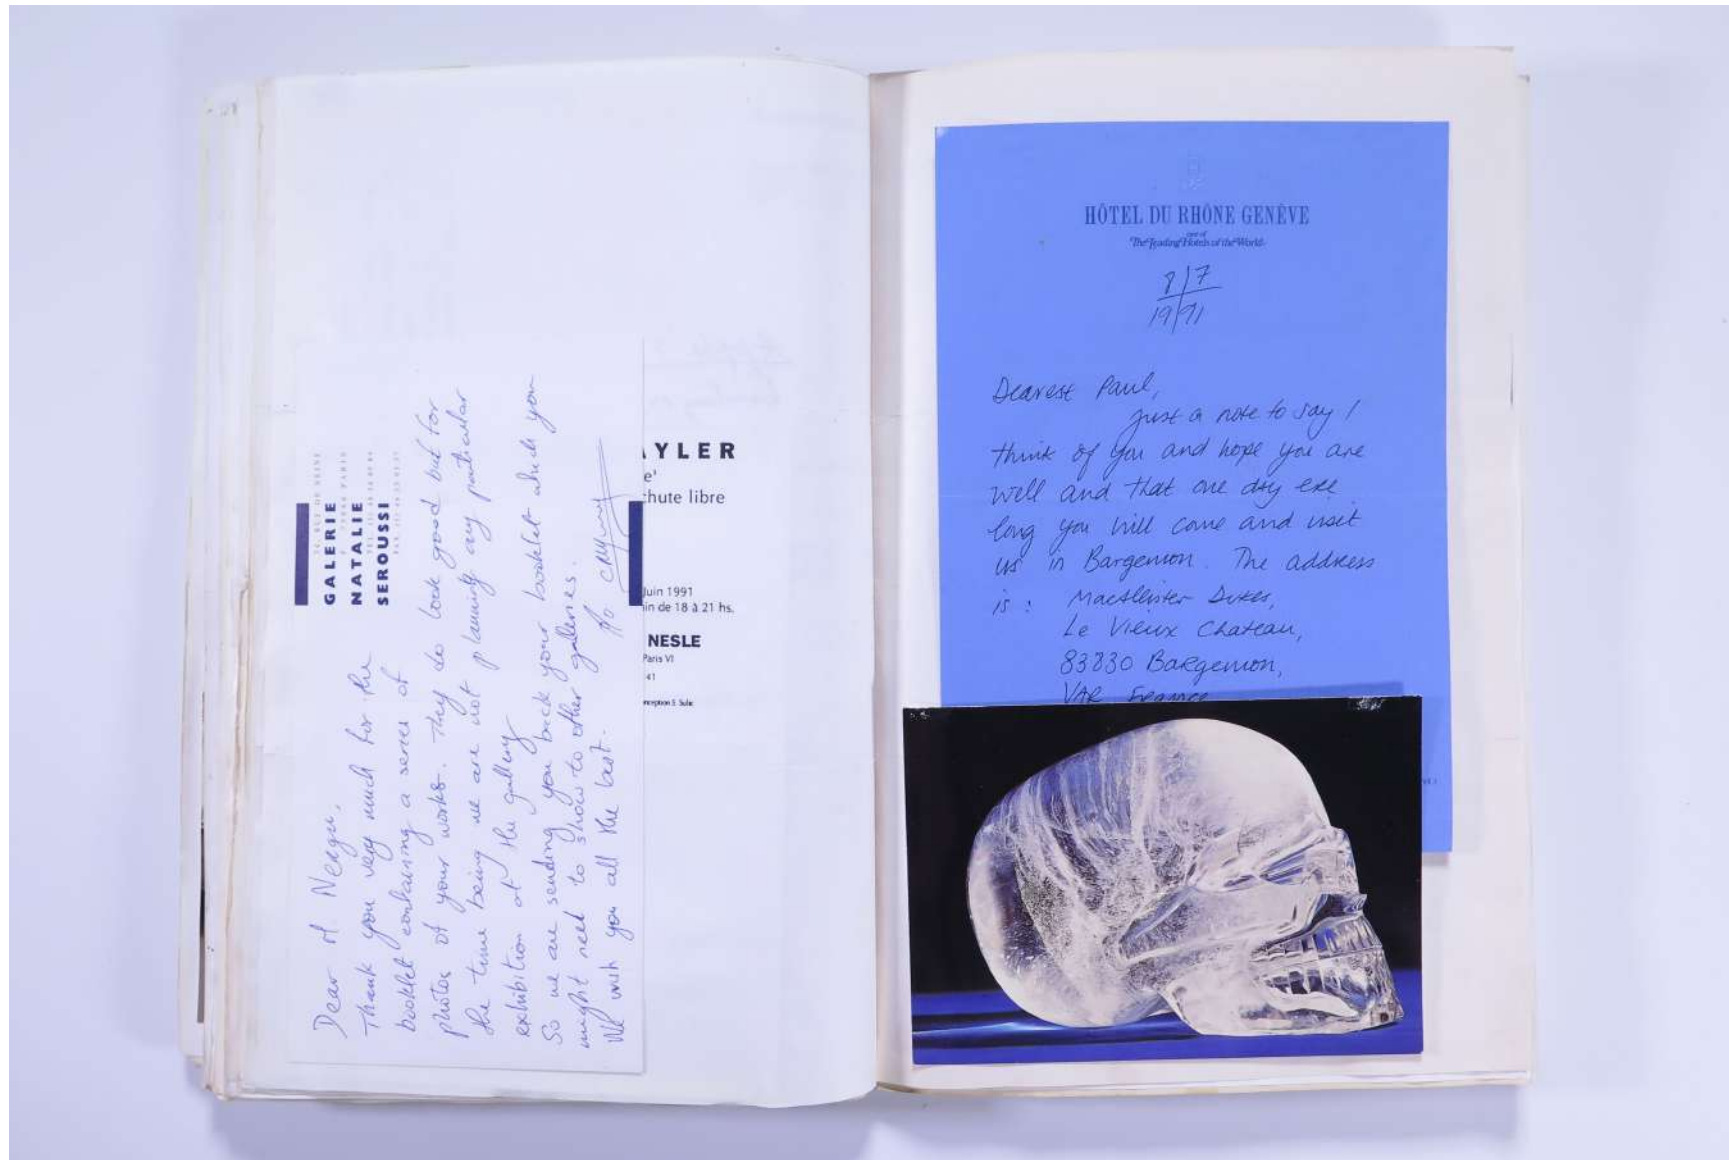 GALERIE
NATALIE
SEROUSSI
Dear M Neagu,
Thank you very much for the
booklet containing a series of
photos of your works. They do look good but for
the time being we are not planning any particular
exhibition at the gallery
So we are sending you back your booklet which you
might need to show to other galleries.
We wish you all the best.
AYLER
e'
chute libre
Juin 1991
in de 18 à 21 hs.
NESLE
Paris VI
41
nception E. Sulic
HÔTEL DU RHÔNE GENÈVE
one of
The Leading Hotels of the World
8/7
19/91
Dearest Paul,
Just a note to say I
think of you and hope you are
well and that one day ere
long you will come and visit
us in Bargemon. The address
is : MacAlister Dukes,
Le Vieux Chateau,
83830 Bargemon,
VAR France